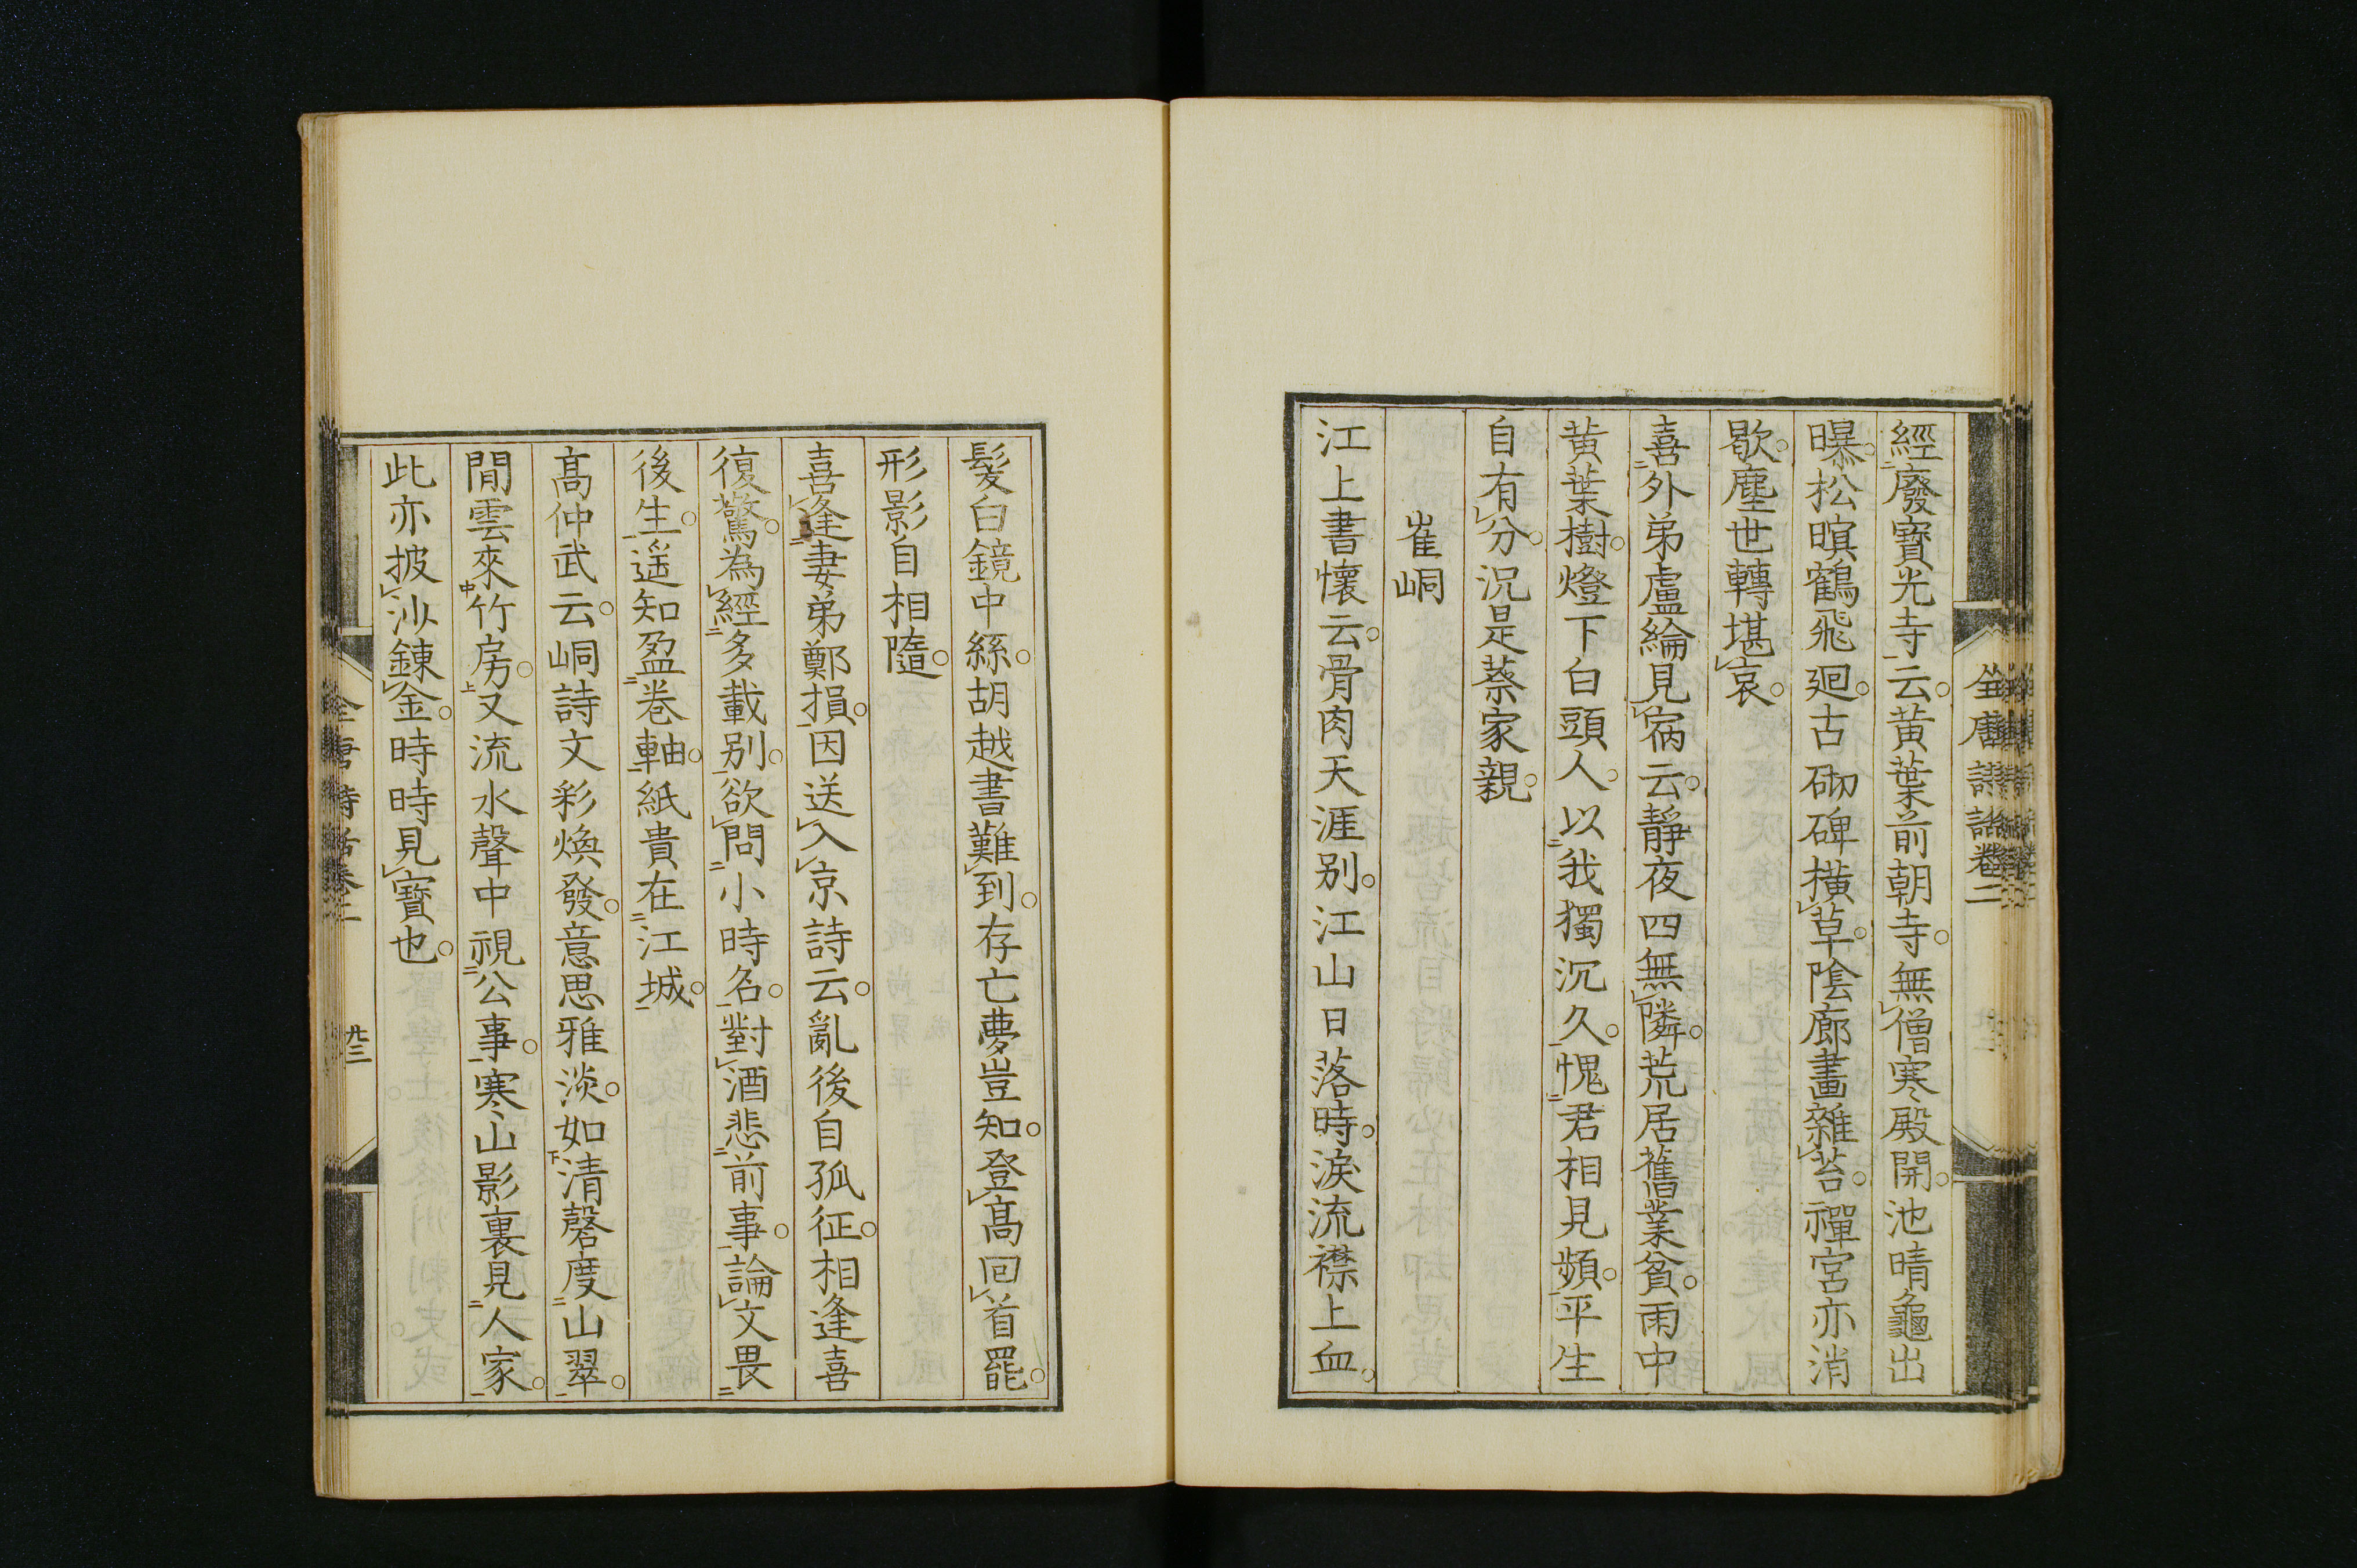 經廢寶光寺云黃葉前朝寺無僧寒殿開池晴龜出
曝松暝鶴飛廻古砌碑橫草陰廊畫雜苔禪宮亦消
歇塵世轉堪哀
喜外弟盧綸見宿云靜夜四無隣荒居舊業貧雨中
黃葉樹燈下白頭人以我獨沉久愧君相見頻平生
自有分況是蔡家親
崔峒
江上書懷云骨肉天涯別江山日落時淚流襟上血
髮白鏡中絲胡越書難到存亡夢豈知登高回首罷
形影自相隨
喜逢妻弟鄭損因送入京詩云亂後自孤征相逢喜
復驚為經多載別欲問小時名對酒悲前事論文畏
後生遥知盈卷軸紙貴在江城
高仲武云峒詩文彩煥發意思雅淡如清磬度山翠
閒雲來竹房又流水聲中視公事寒山影裏見人家
此亦披沙鍊金時時見寶也